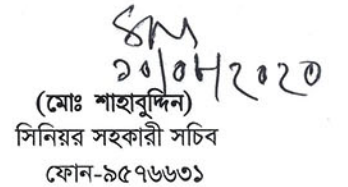 ১০/০৮/২০২০
(মোঃ শাহাবুদ্দিন)
সিনিয়র সহকারী সচিব
ফোন-৯৫৭৬৬৩১